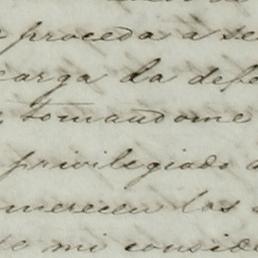 proceda a se
carga la defe
tomandome
privilegiado a
merecen los
de mi conside